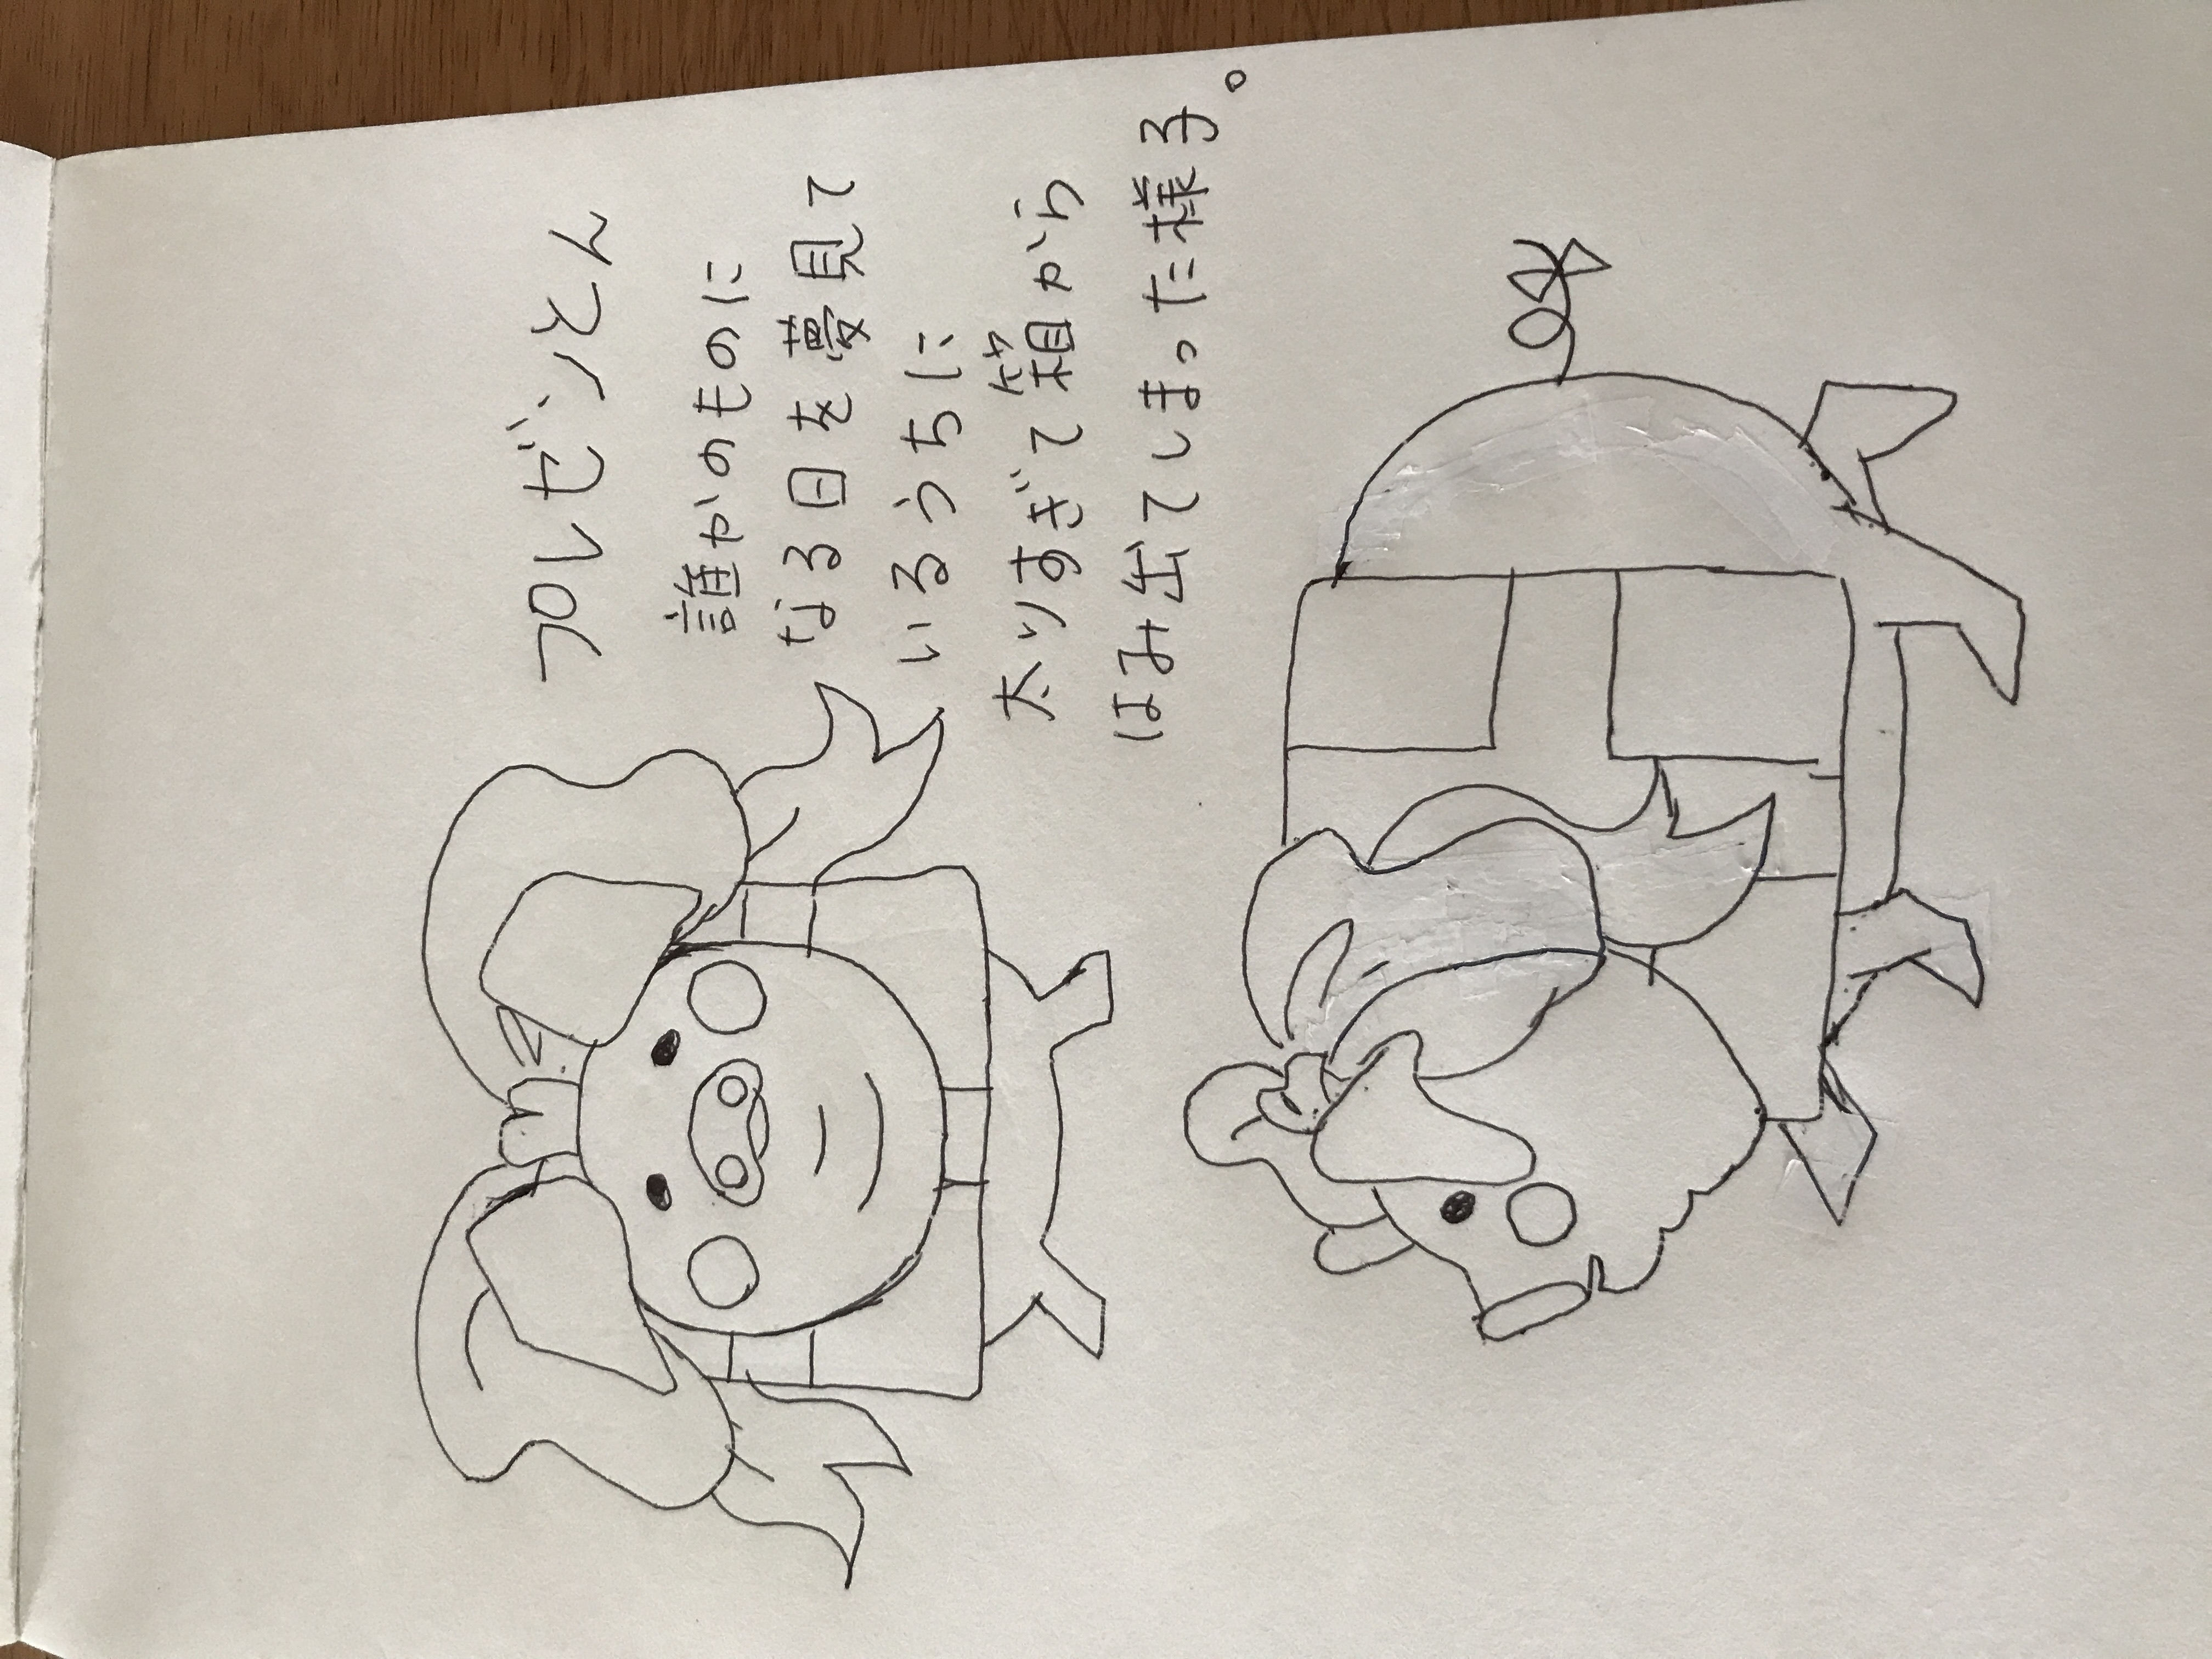 プレゼンとん
誰かのものに
なる日を夢見て
いるうちに
太りすぎて箱から
はみ出てしまった様子。